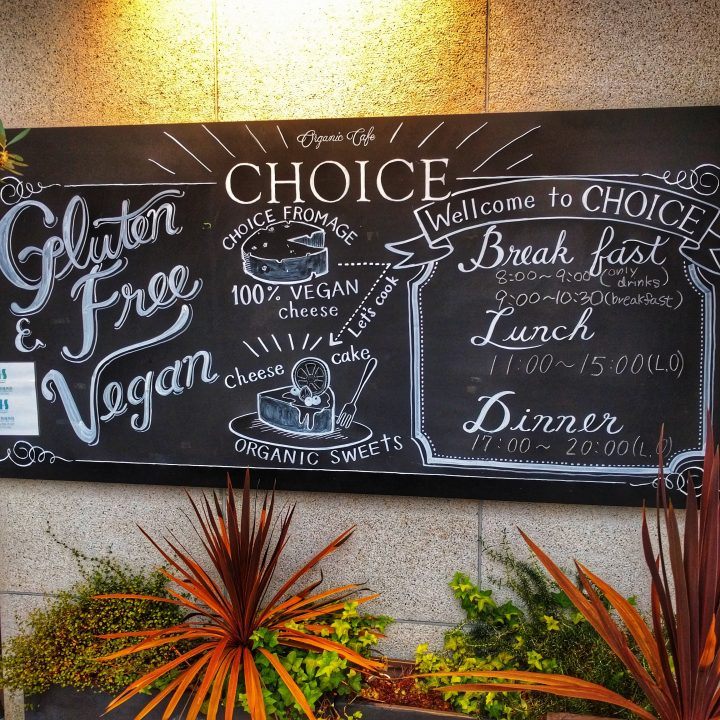 Organic Cafe
CHOICE
Gluten
Free
&
Vegan
CHOICE FROMAGE
100% VEGAN
cheese
Let's cook
cheese cake
ORGANIC SWEETS
Wellcome to CHOICE
Break fast
8:00~9:00(only drinks)
9:00~10:30(breakfast)
Lunch
11:00~15:00(L.O)
Dinner
17:00~20:00(L.O)